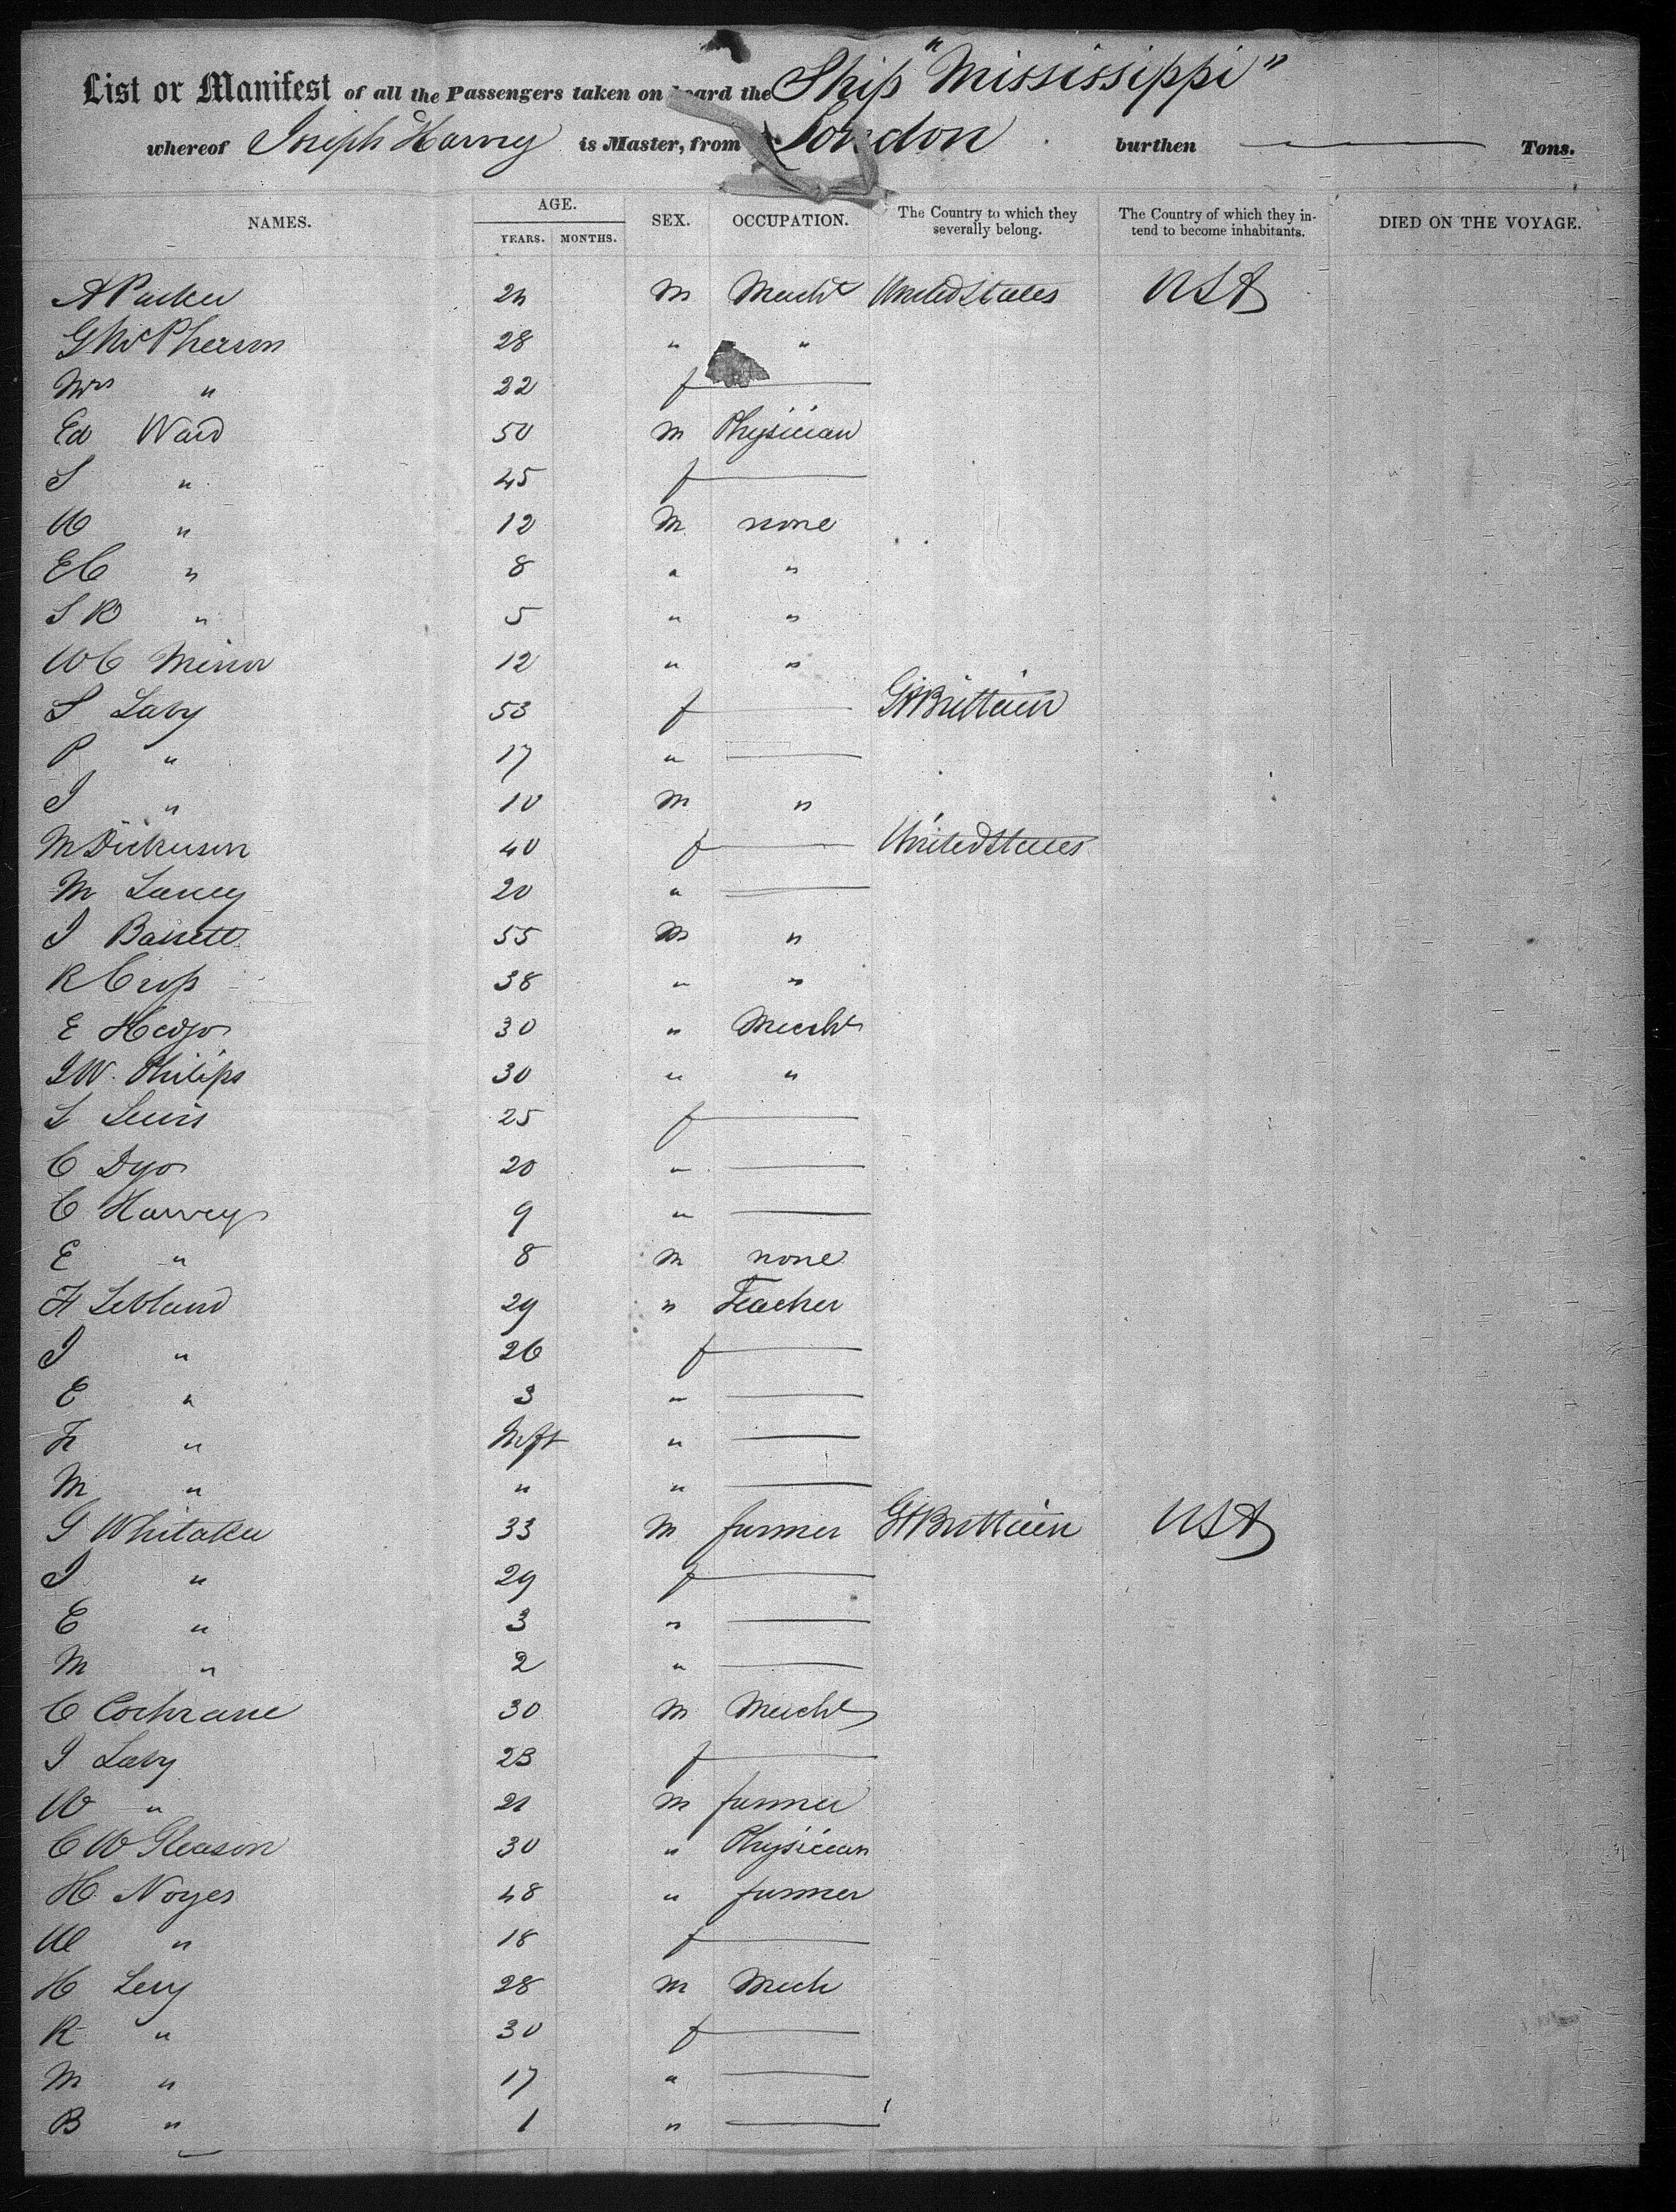 List or Manifest of all the Passengers taken on board the Ship "Mississippi"
whereof Joseph Harvey is Master, from London burthen Tons.
NAMES. AGE. YEARS. MONTHS. SEX. OCCUPATION. The Country to which they severally belong. The Country of which they intend to become inhabitants. DIED ON THE VOYAGE.
A Parker M Mercht United States USA
G McPherson 28 " "
Mrs " 22 f
Ed Ward 50 M Physician
S " 45 f
W " 12 M none
E C " 8 " "
S R " 5 " "
W C Minor 12 " "
S Laby 53 f Gt Brittain
P " 17 "
J " 10 M "
M Dickerson 40 f United States
M 20 "
J Bassett 55 M "
R 38 " "
E 30 " Mercht
J W. Philips 30 " "
L Lewis 25 f
C 20 "
C Harvey 9 "
E " 8 M none
29 " Teacher
J " 26 f
E " 3 "
" Inft "
M " " "
G Whitaker 33 M farmer Gt Brittain USA
J " 29 f
E " 3 "
M " 2 "
C Cochrane 30 M Mercht
J Laby 23 f
W " 21 M farmer
C W Gleason 30 " Physician
H Noyes 48 " farmer
" 18 f
H Levy 28 M Mech
R " 30 f
M " 17 "
B " 1 "